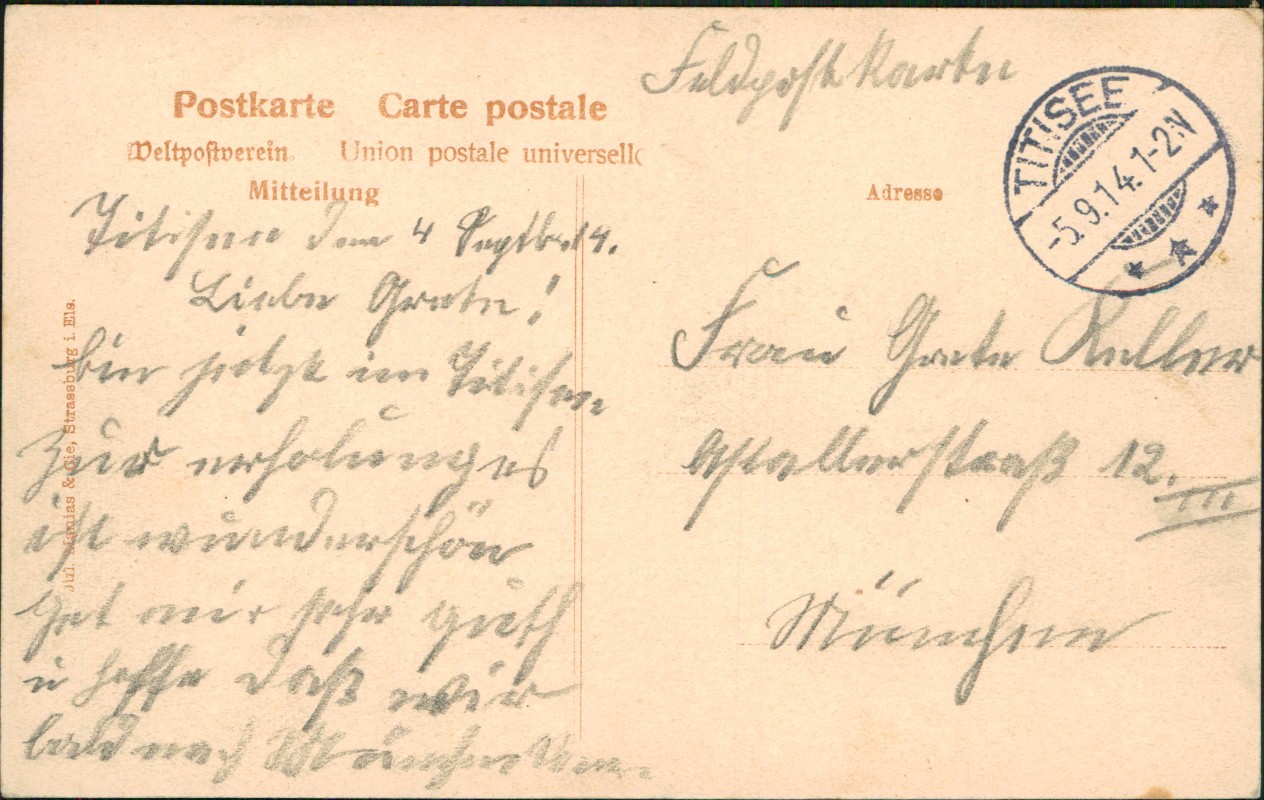 Feldpostkarte
Postkarte Carte postale
Weltpostverein. Union postale universelle
Mitteilung
Adresse
TITISEE
-5.9.14.1-2N
Titisee den 4 Septb. 14.
Liebe Grete!
bin jetzt im Titisee
zur erholung es
ist wunderschön
get mir sehr guth
u hoffe daß wir
bald nach München
Frau Grete Keller
Astallerstraß 12. III
München
Jul. Manias & Cie, Strassburg i. Els.